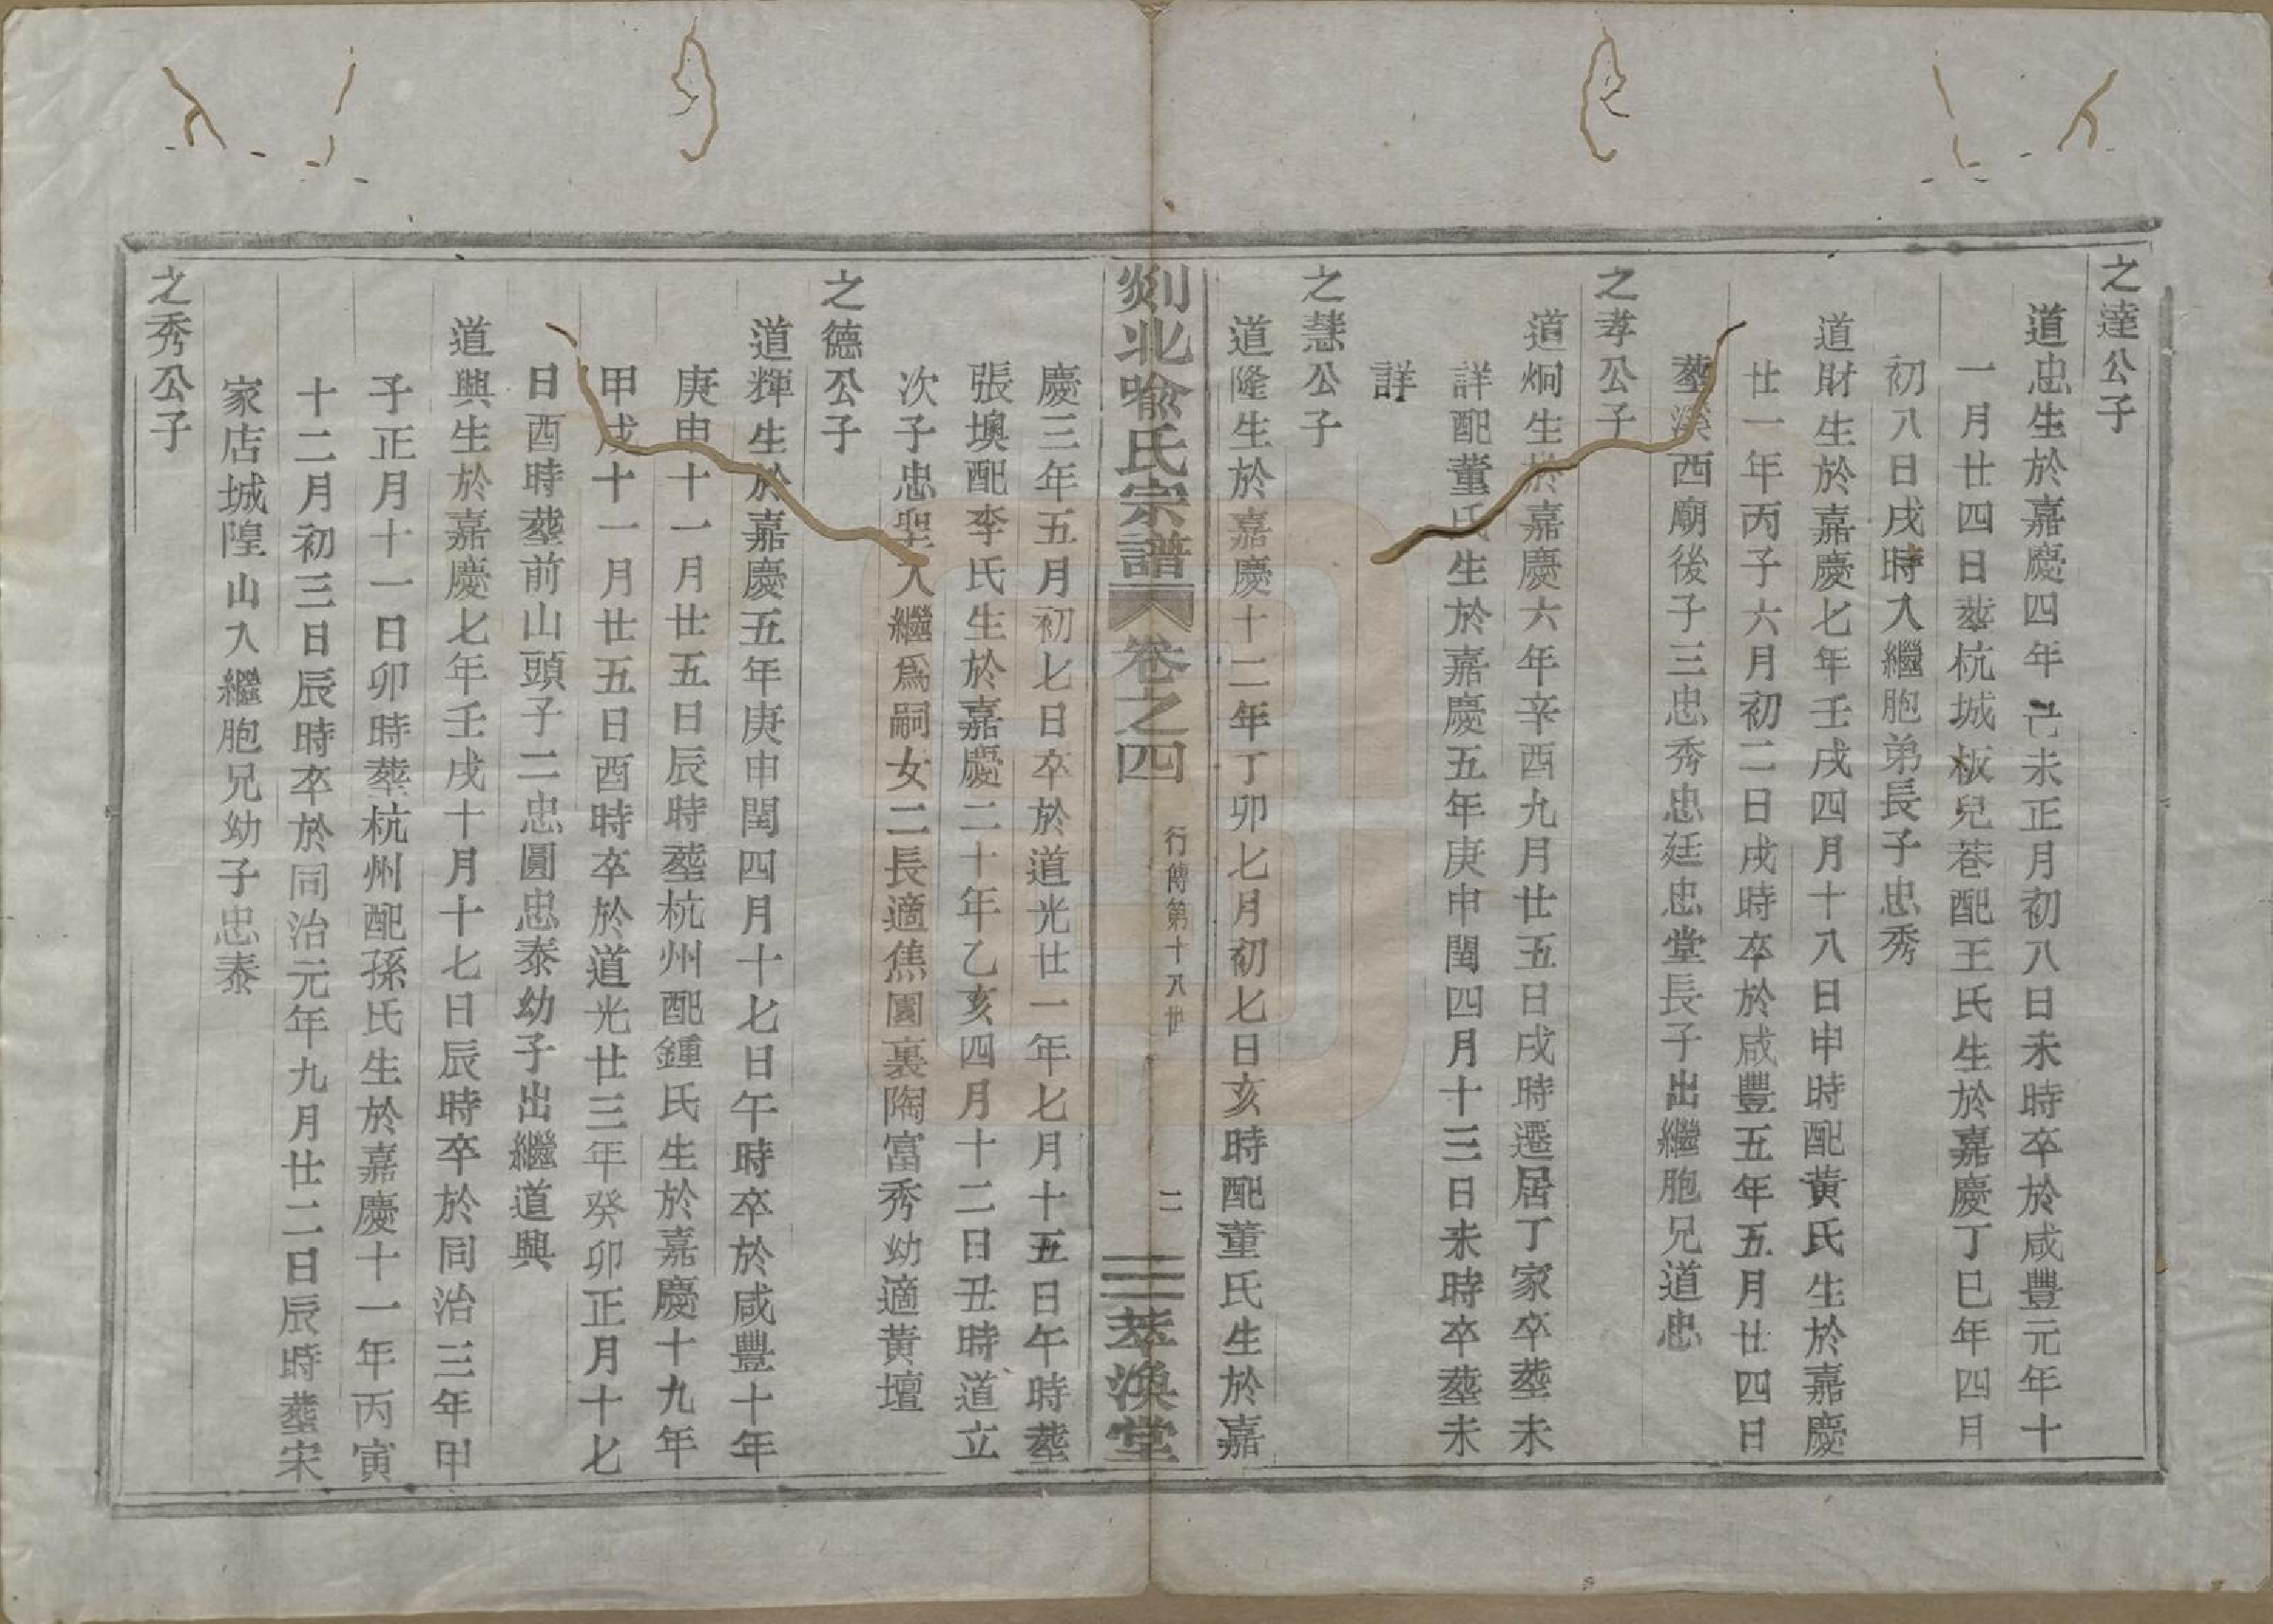 之達公子
道忠生於嘉慶四年己未正月初八日未時卒於咸豐元年十
一月廿四日塟杭城板兒巷配王氏生於嘉慶丁巳年四月
初八日戌時入繼胞弟長子忠秀
道財生於嘉慶七年壬戌四月十八日申時配黃氏生於嘉慶
廿一年丙子六月初二日戌時卒於咸豐五年五月廿四日
塟溪西廟後子三忠秀忠廷忠堂長子出繼胞兄道忠
之孝公子
道炯生於嘉慶六年辛酉九月廿五日戌時遷居丁家卒塟未
詳配董氏生於嘉慶五年庚申閏四月十三日未時卒塟未
詳
之慧公子
道隆生於嘉慶十二年丁卯七月初七日亥時配董氏生於嘉
剡北喻氏宗譜 卷之四 行傳第十八世 二 萃渙堂
慶三年五月初七日卒於道光廿一年七月十五日午時塟
張墺配李氏生於嘉慶二十年乙亥四月十二日丑時道立
次子忠聖入繼爲嗣女二長適焦園裏陶富秀幼適黄壇
之德公子
道輝生於嘉慶五年庚申閏四月十七日午時卒於咸豐十年
庚申十一月廿五日辰時塟杭州配鍾氏生於嘉慶十九年
甲戌十一月廿五日酉時卒於道光廿三年癸卯正月十七
日酉時塟前山頭子二忠圓忠泰幼子出繼道興
道興生於嘉慶七年壬戌十月十七日辰時卒於同治三年甲
子正月十一日卯時塟杭州配孫氏生於嘉慶十一年丙寅
十二月初三日辰時卒於同治元年九月廿二日辰時塟宋
家店城隍山入繼胞兄幼子忠泰
之秀公子